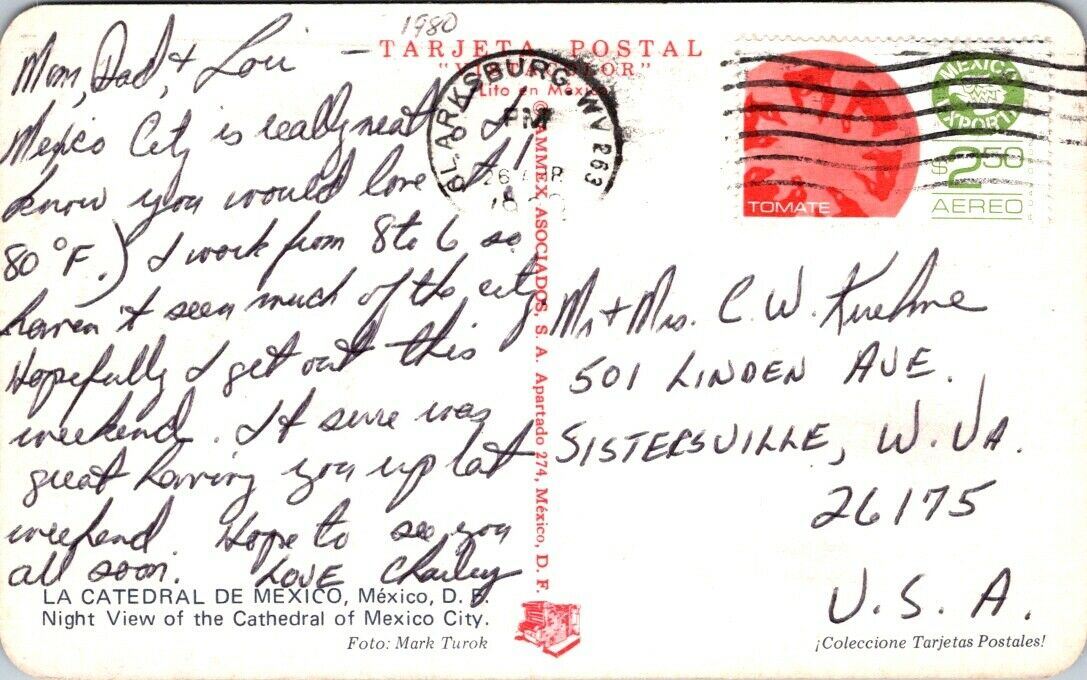 1980
TARJETA POSTAL
"VISTACOLOR"
Lito en México
Mom, Dad, + Lori
Mexico City is really neat (I
know you would love it!
80°F.) I work from 8 to 6 so
haven't seen much of the city
Hopefully I get out this
weekend. It sure was
great having you up last
weekend. Hope to see you
all soon. LOVE Charley
LA CATEDRAL DE MEXICO, México, D. F.
Night View of the Cathedral of Mexico City.
Foto: Mark Turok
© AMMEX ASOCIADOS, S. A. Apartado 274, México, D. F.
CLARKSBURG WV 263
PM
26
MEXICO
EXPORTA
$2.50
AEREO
TOMATE
Mr + Mrs. C. W. Kuehne
501 LINDEN AVE.
SISTERSVILLE, W. VA.
26175
U. S. A.
¡Coleccione Tarjetas Postales!